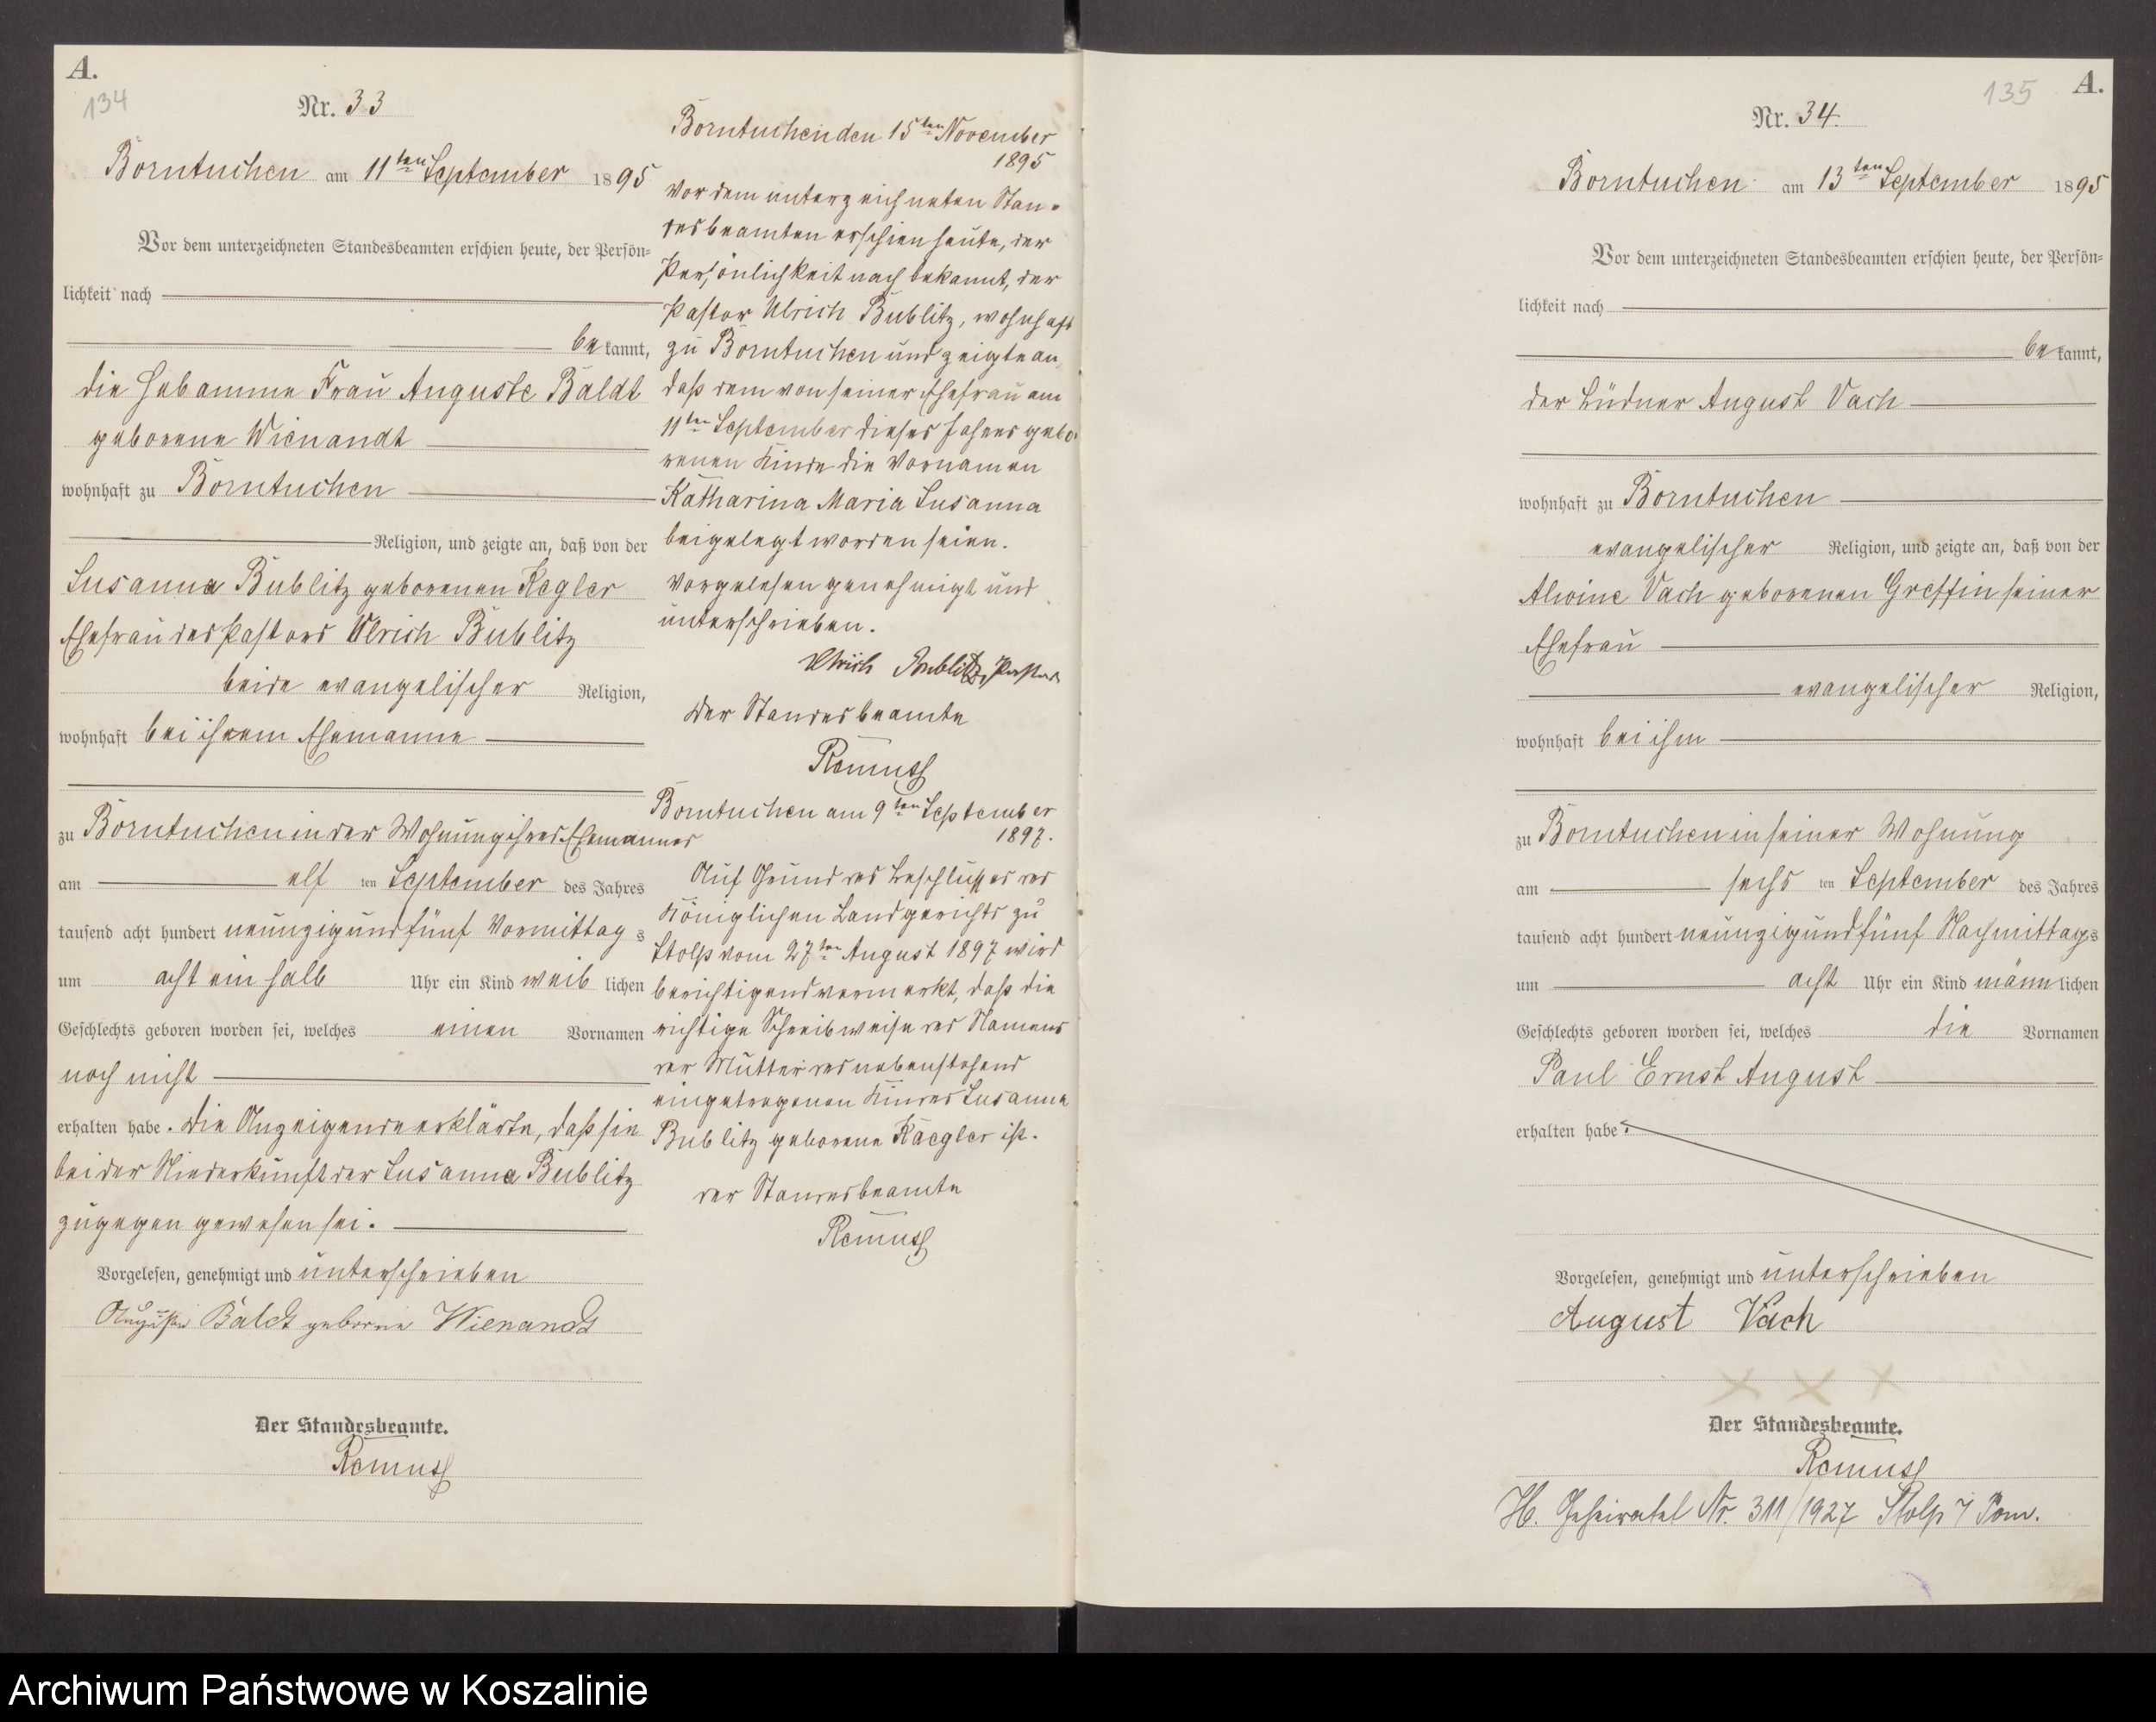 A.
134
Nr. 33
Borntuchen am 11ten September 1895
Vor dem unterzeichneten Standesbeamten erschien heute, der Persön-
lichkeit nach
bekannt,
die Hebamme Frau Auguste Baldt
geborene Wienandt
wohnhaft zu Borntuchen
Religion, und zeigte an, daß von der
Susanna Bublitz geborenen Kegler
Ehefrau des Pastors Ulrich Bublitz
beide evangelischer Religion,
wohnhaft bei ihrem Ehemanne
zu Borntuchen in der Wohnung ihres Ehemannes
am elf ten September des Jahres
tausend acht hundert neunzig und fünf Vormittags
um acht ein halb Uhr ein Kind weiblichen
Geschlechts geboren worden sei, welches einen Vornamen
noch nicht
erhalten habe. Die Anzeigende erklärte, daß sie
bei der Niederkunft der Susanna Bublitz
zugegen gewesen sei.
Vorgelesen, genehmigt und unterschrieben
Auguste Baldt geborene Wienandt
Der Standesbeamte.
Remuss
Borntuchen den 15ten November
1895
Vor dem unterzeichneten Stan-
desbeamten erschien heute, der
Persönlichkeit nach bekannt, der
Pastor Ulrich Bublitz, wohnhaft
zu Borntuchen und zeigte an,
daß dem von seiner Ehefrau am
11ten September dieses Jahres gebo-
renen Kinde die Vornamen
Katharina Maria Susanna
beigelegt worden seien.
Vorgelesen genehmigt und
unterschrieben.
Ulrich Bublitz, Pastor
Der Standesbeamte
Remuss
Borntuchen am 9ten September
1897.
Auf Grund des Beschlusses des
Königlichen Landgerichts zu
Stolp vom 27ten August 1897 wird
berichtigend vermerkt, daß die
richtige Schreibweise des Namens
der Mutter des nebenstehend
eingetragenen Kindes Susanna
Bublitz geborene Kaegler ist.
Der Standesbeamte
Remuss
135
A.
Nr. 34.
Borntuchen am 13ten September 1895
Vor dem unterzeichneten Standesbeamten erschien heute, der Persön-
lichkeit nach
bekannt,
der Büdner August Vach
wohnhaft zu Borntuchen
evangelischer Religion, und zeigte an, daß von der
Alwine Vach geborenen Greffin seiner
Ehefrau
evangelischer Religion,
wohnhaft bei ihm
zu Borntuchen in seiner Wohnung
am sechs ten September des Jahres
tausend acht hundert neunzig und fünf Nachmittags
um acht Uhr ein Kind männlichen
Geschlechts geboren worden sei, welches die Vornamen
Paul Ernst August
erhalten habe.
Vorgelesen, genehmigt und unterschrieben
August Vach
Der Standesbeamte.
Remuss
H. Geheiratet Nr. 311/1927 Stolp i/ Pom.
Archiwum Państwowe w Koszalinie